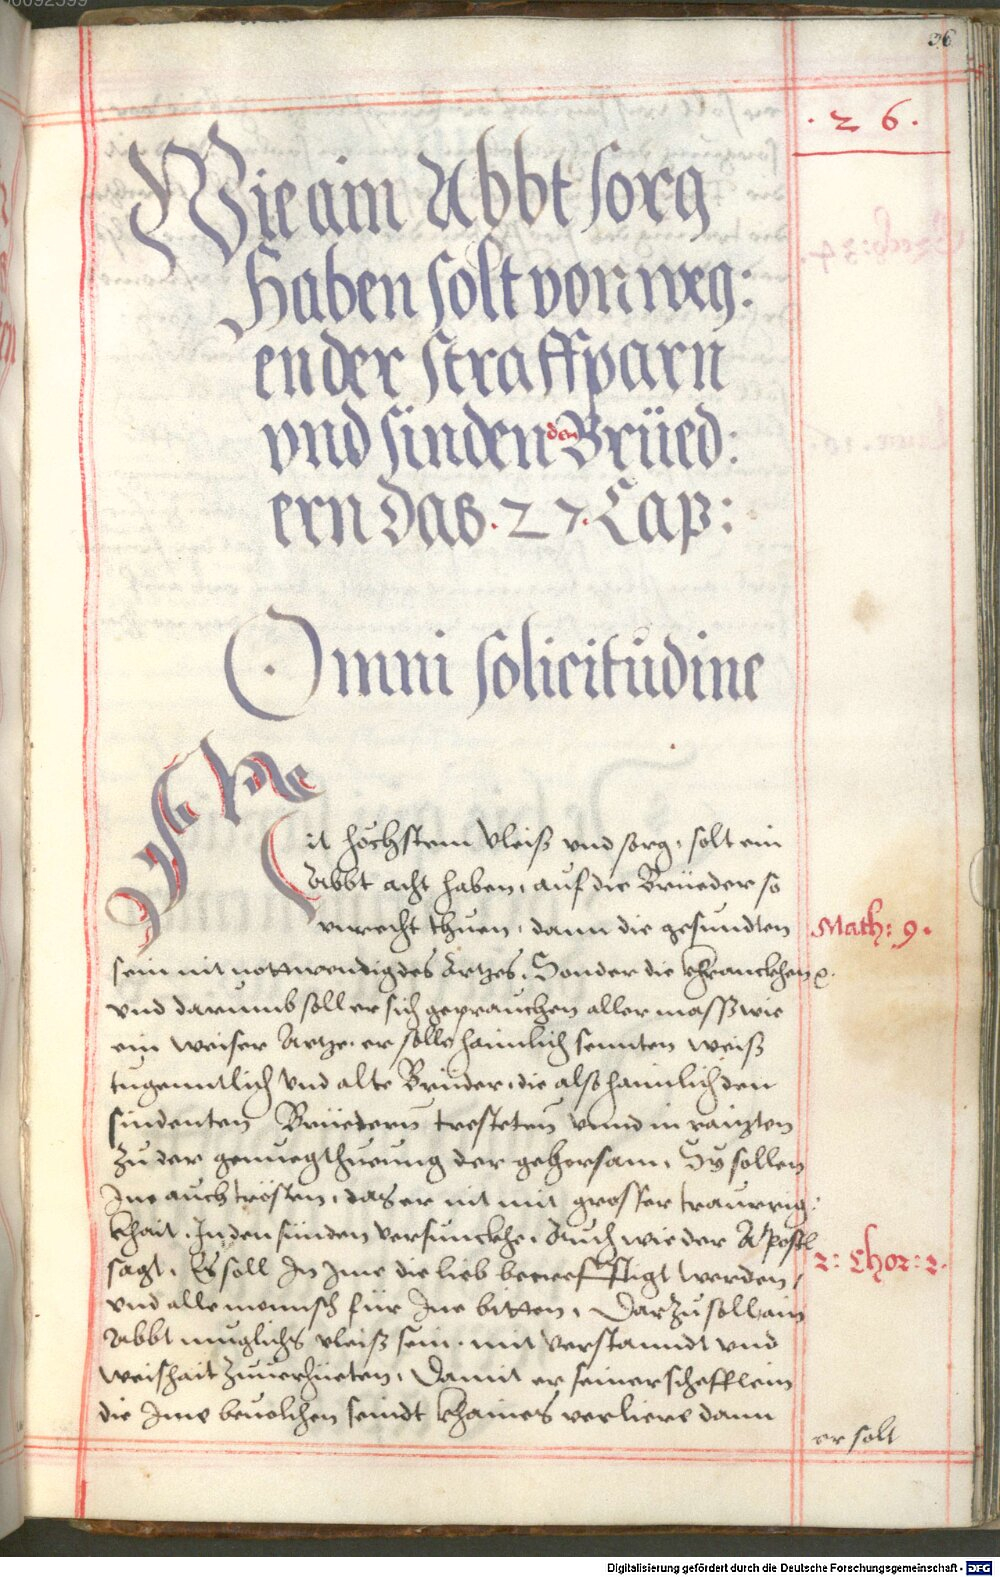 36
. 2 6 .
Wie ain Abbt sorg
Haben solt von weg:
en der straffparn
vnd sinden den Brüed:
ern das . 27 . Cap:
Omni solicitudine
Mit höchstem vleiß vnd sorg, solt ein
Abbt acht haben, auf die Brüeder so
vnrecht thuen, dann die gesundten
Math: 9.
sein nit nottwendig des Artzes, Sonder die khranckhen
vnd darumb soll er sich geprauchen aller masß wie
ein weiser Artze, er solle haimlich senntten weiß
tugenntlich vnd alte Brüder, die alß haimlich den
sindenten Brüedern trosteten vnnd in raitzten
zu der genuegthueung der gehorsam, Sy sollen
Ine auch trösten, das er nit mit grosser traurrig:
khait, In den sünden versunckhe, Auch wie der Apostl
sagt, Es soll In Ime die lieb becreffftigt werden,
2: Chor: 2.
vnd alle mennsch für Ine bitten, Darzu soll ain
Abbt muglichs vleiß sein, mit verstanndt vnd
weishait zuuerhüeten, Damit er seiner schefflein
die Ime beuolchen seindt khaines verliere dann
er solt
Digitalisierung gefördert durch die Deutsche Forschungsgemeinschaft - DFG